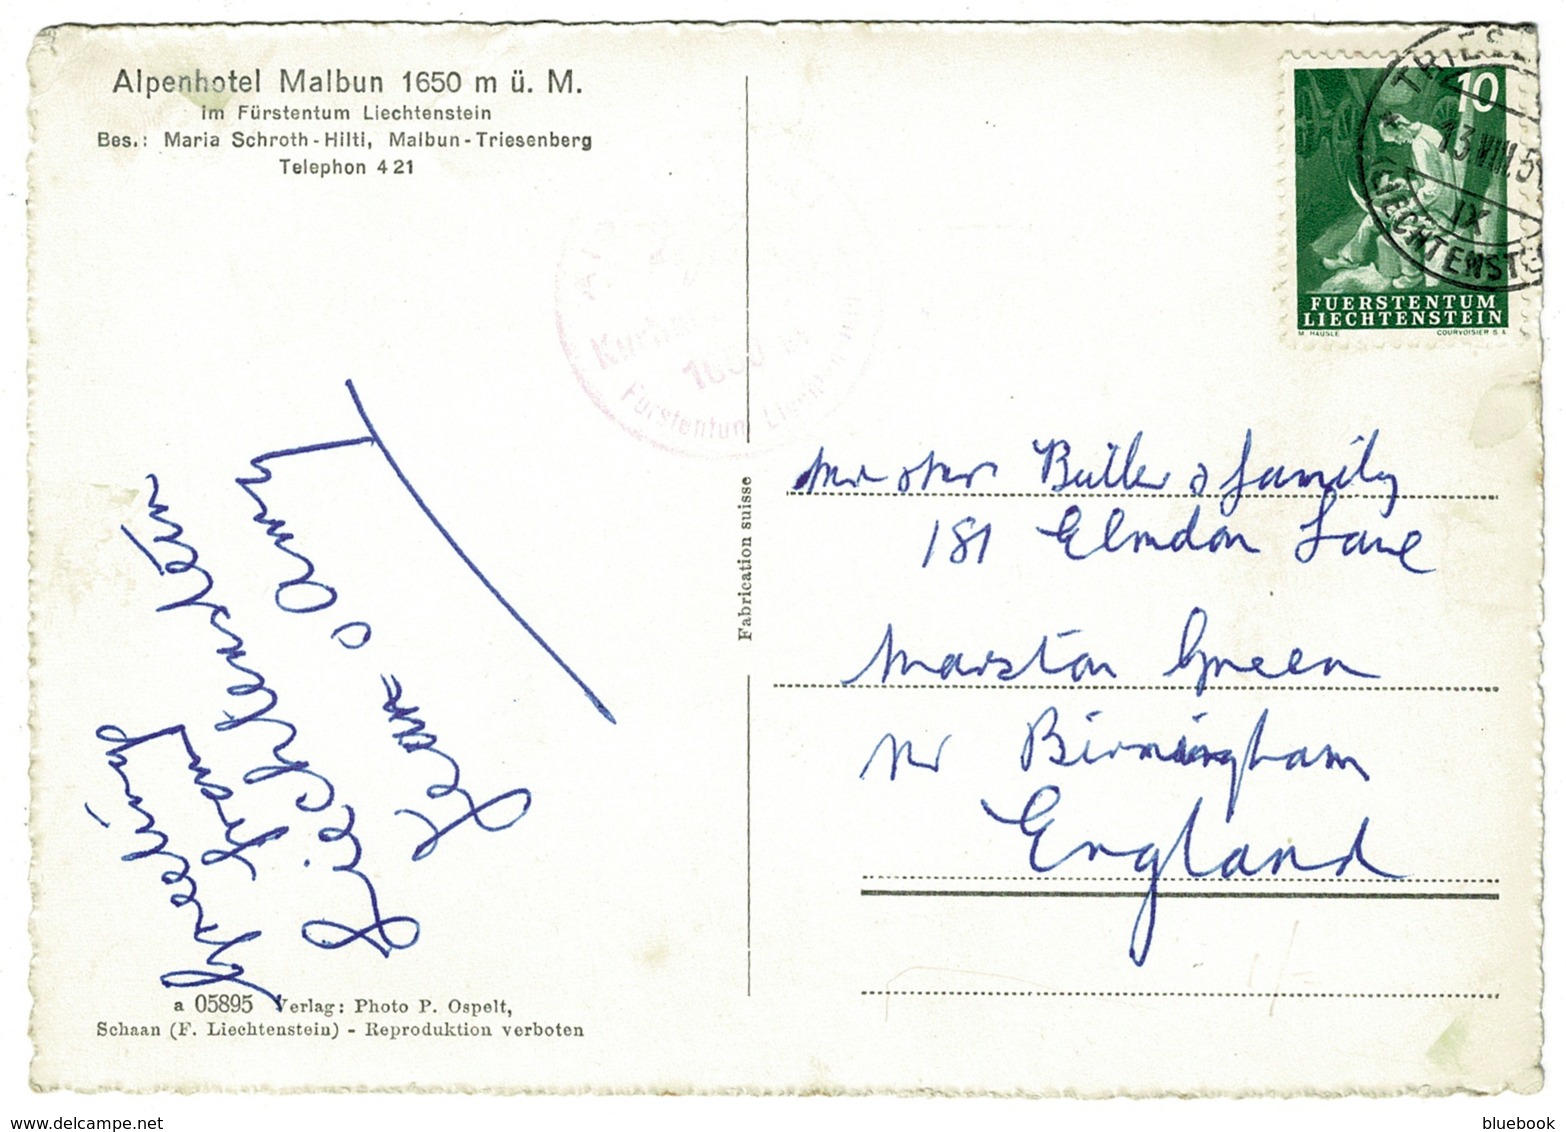 Alpenhotel Malbun 1650 m ü. M.
im Fürstentum Liechtenstein
Bes.: Maria Schroth-Hilti, Malbun-Triesenberg
Telephon 4 21
10
FUERSTENTUM
LIECHTENSTEIN
M. HAUSLE COURVOISIER S.A.
TRIES
13.VIII.5
IX
LIECHTENSTE
1650 m
Fürstentum Liechtenstein
Fabrication suisse
Mr & Mrs Butler & family
181 Elmdon Lane
Marston Green
Nr Birmingham
England
Greetings
from
Liechtenstein
Jean & Ann
a 05895 Verlag: Photo P. Ospelt,
Schaan (F. Liechtenstein) - Reproduktion verboten
www.delcampe.net
bluebook